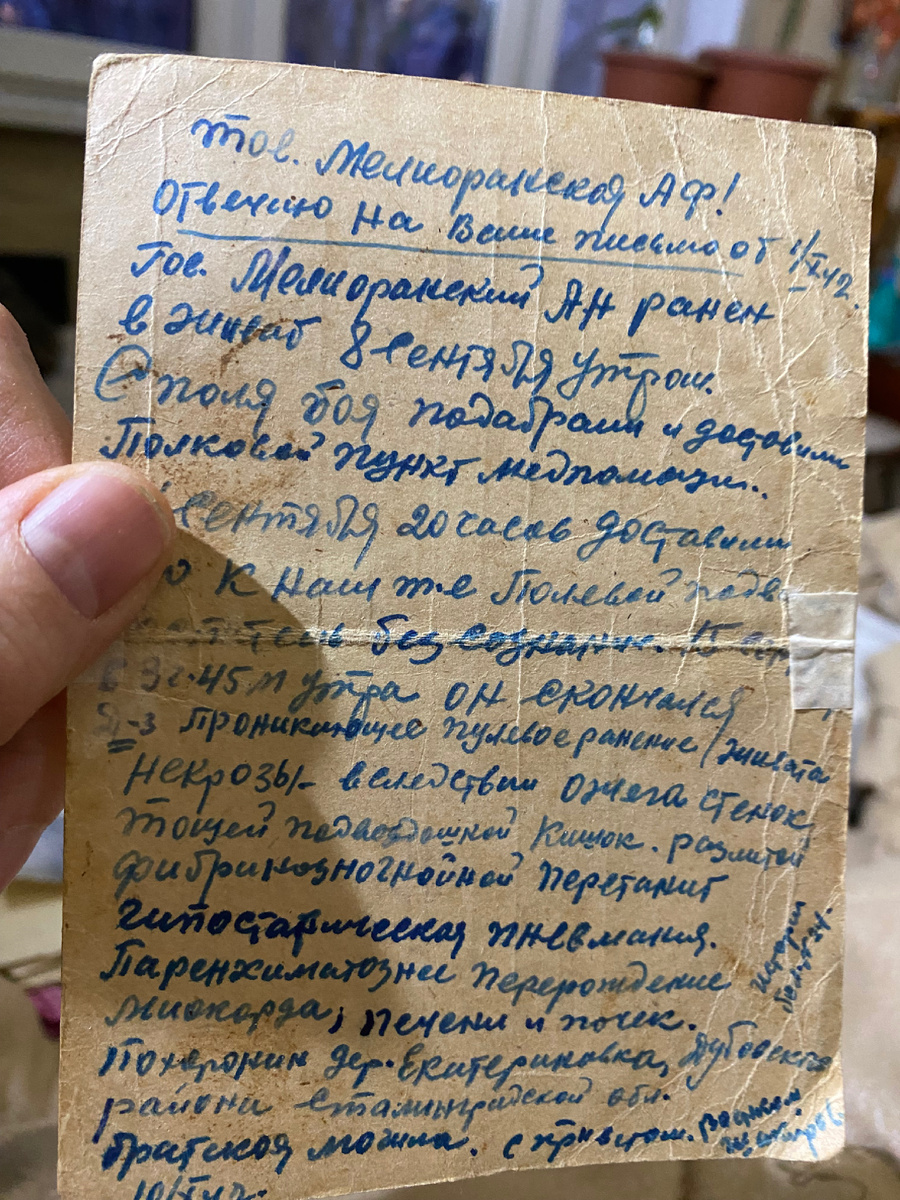 Тов. Мелиоранская А Ф!
Отвечаю на Ваше письмо от
Тов. Мелиоранский АН ранен
в живот 8 Сентября утром.
С поля боя подабрали и доставили
Полковой пункт медпомощи..
Сентября 20 часов доставили
к нам т-е Полевой подв
без сознания.
в 3ч.45м утра он скончался
Д-з Проникающее пулевое ранение живота
некрозы- вследствии ожега стенок
тощей подвздошной Кишок. разлитой
фибринозногнойной перетанит
гипостатическая пневмания.
Паренхиматозное перерождение
миокарда, печени и почек.
Похоронин дер. Екатериновка, Дубовского
района Сталинградской обл.
братская могила. с приветом.
история